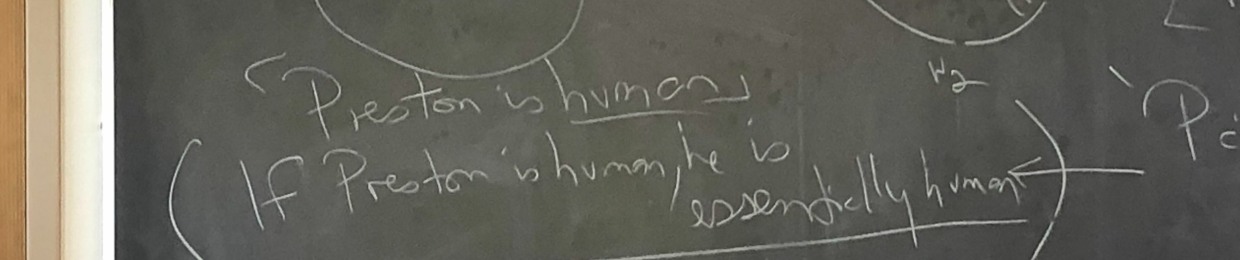 Preston is human
w2
(If Preston is human, he is
essentially human)